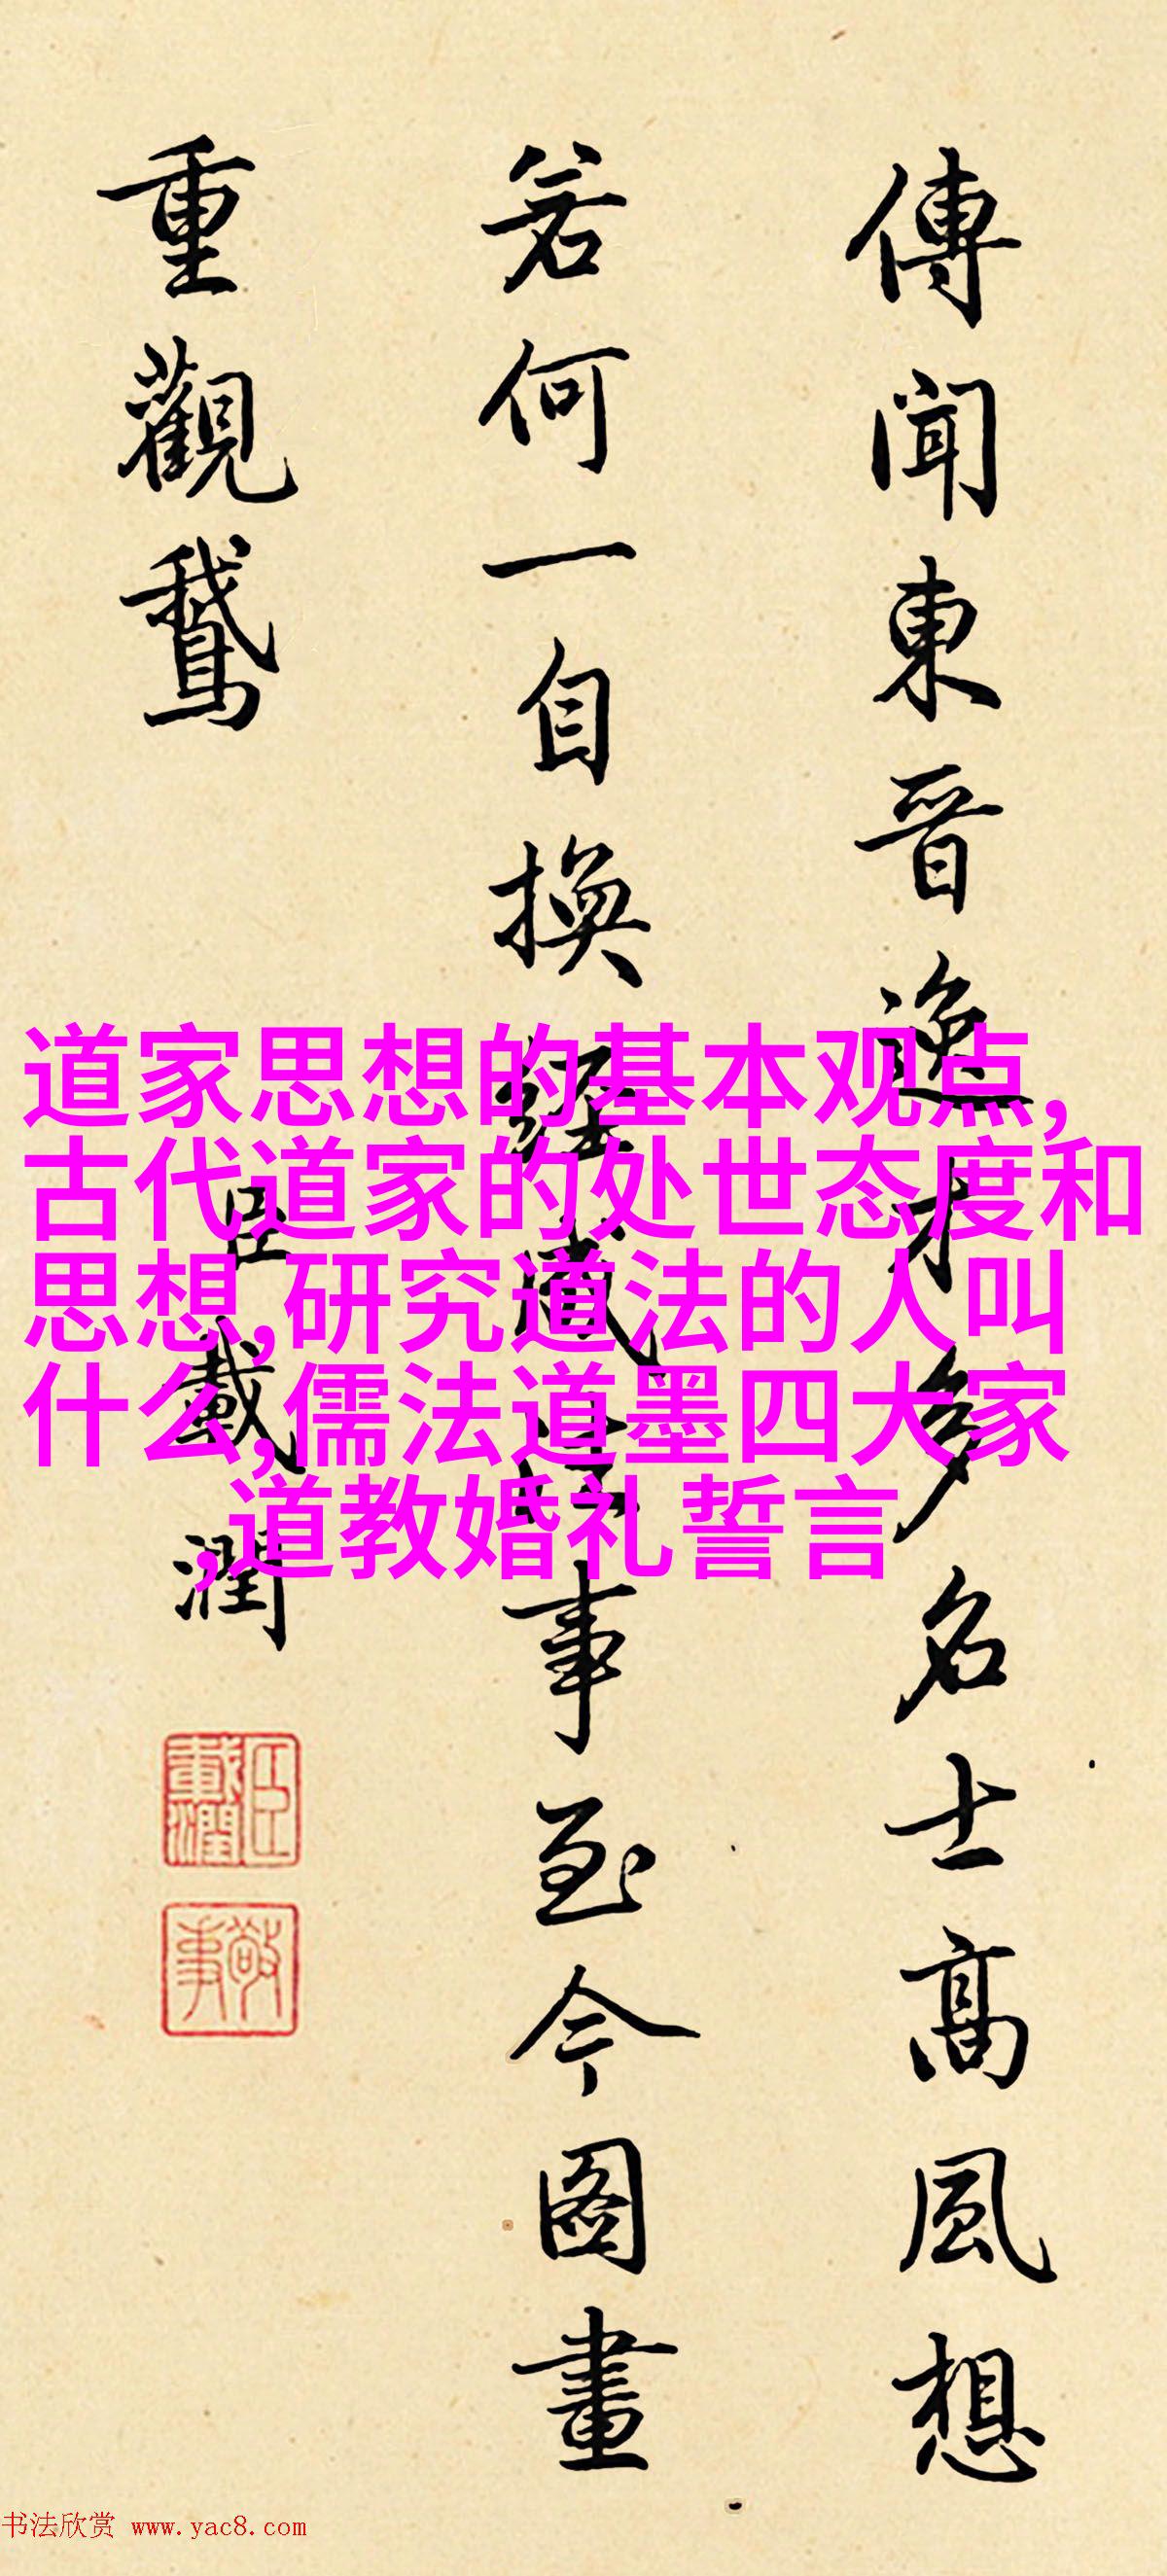 傳聞東晉逸才多名士髙風想
若何一自換經成事至今圖畫
重觀鵝
臣載潤
臣載潤
敬事
道家思想的基本观点,
古代道家的处世态度和
思想,研究道法的人叫
什么,儒法道墨四大家
,道教婚礼誓言
书法欣赏 www.yac8.com